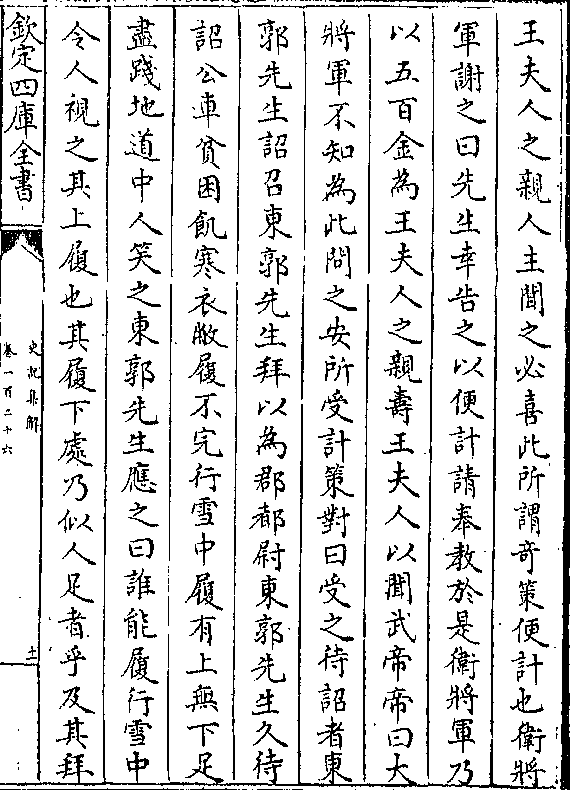 王夫人之親人主聞之必喜此所謂竒策便計也衛將
軍謝之曰先生幸告之以便計請奉教於是衛將軍乃
以五百金為王夫人之親壽王夫人以聞武帝帝曰大
將軍不知為此問之安所受計策對曰受之待詔者東
郭先生詔召東郭先生拜以為郡都尉東郭先生久待
詔公車貧困飢寒衣敝履不完行雪中履有上無下足
盡踐地道中人笑之東郭先生應之曰誰能履行雪中
令人視之其上履也其履下處乃似人足者乎及其拜
欽定四庫全書
史記集解
卷一百二十六
十二